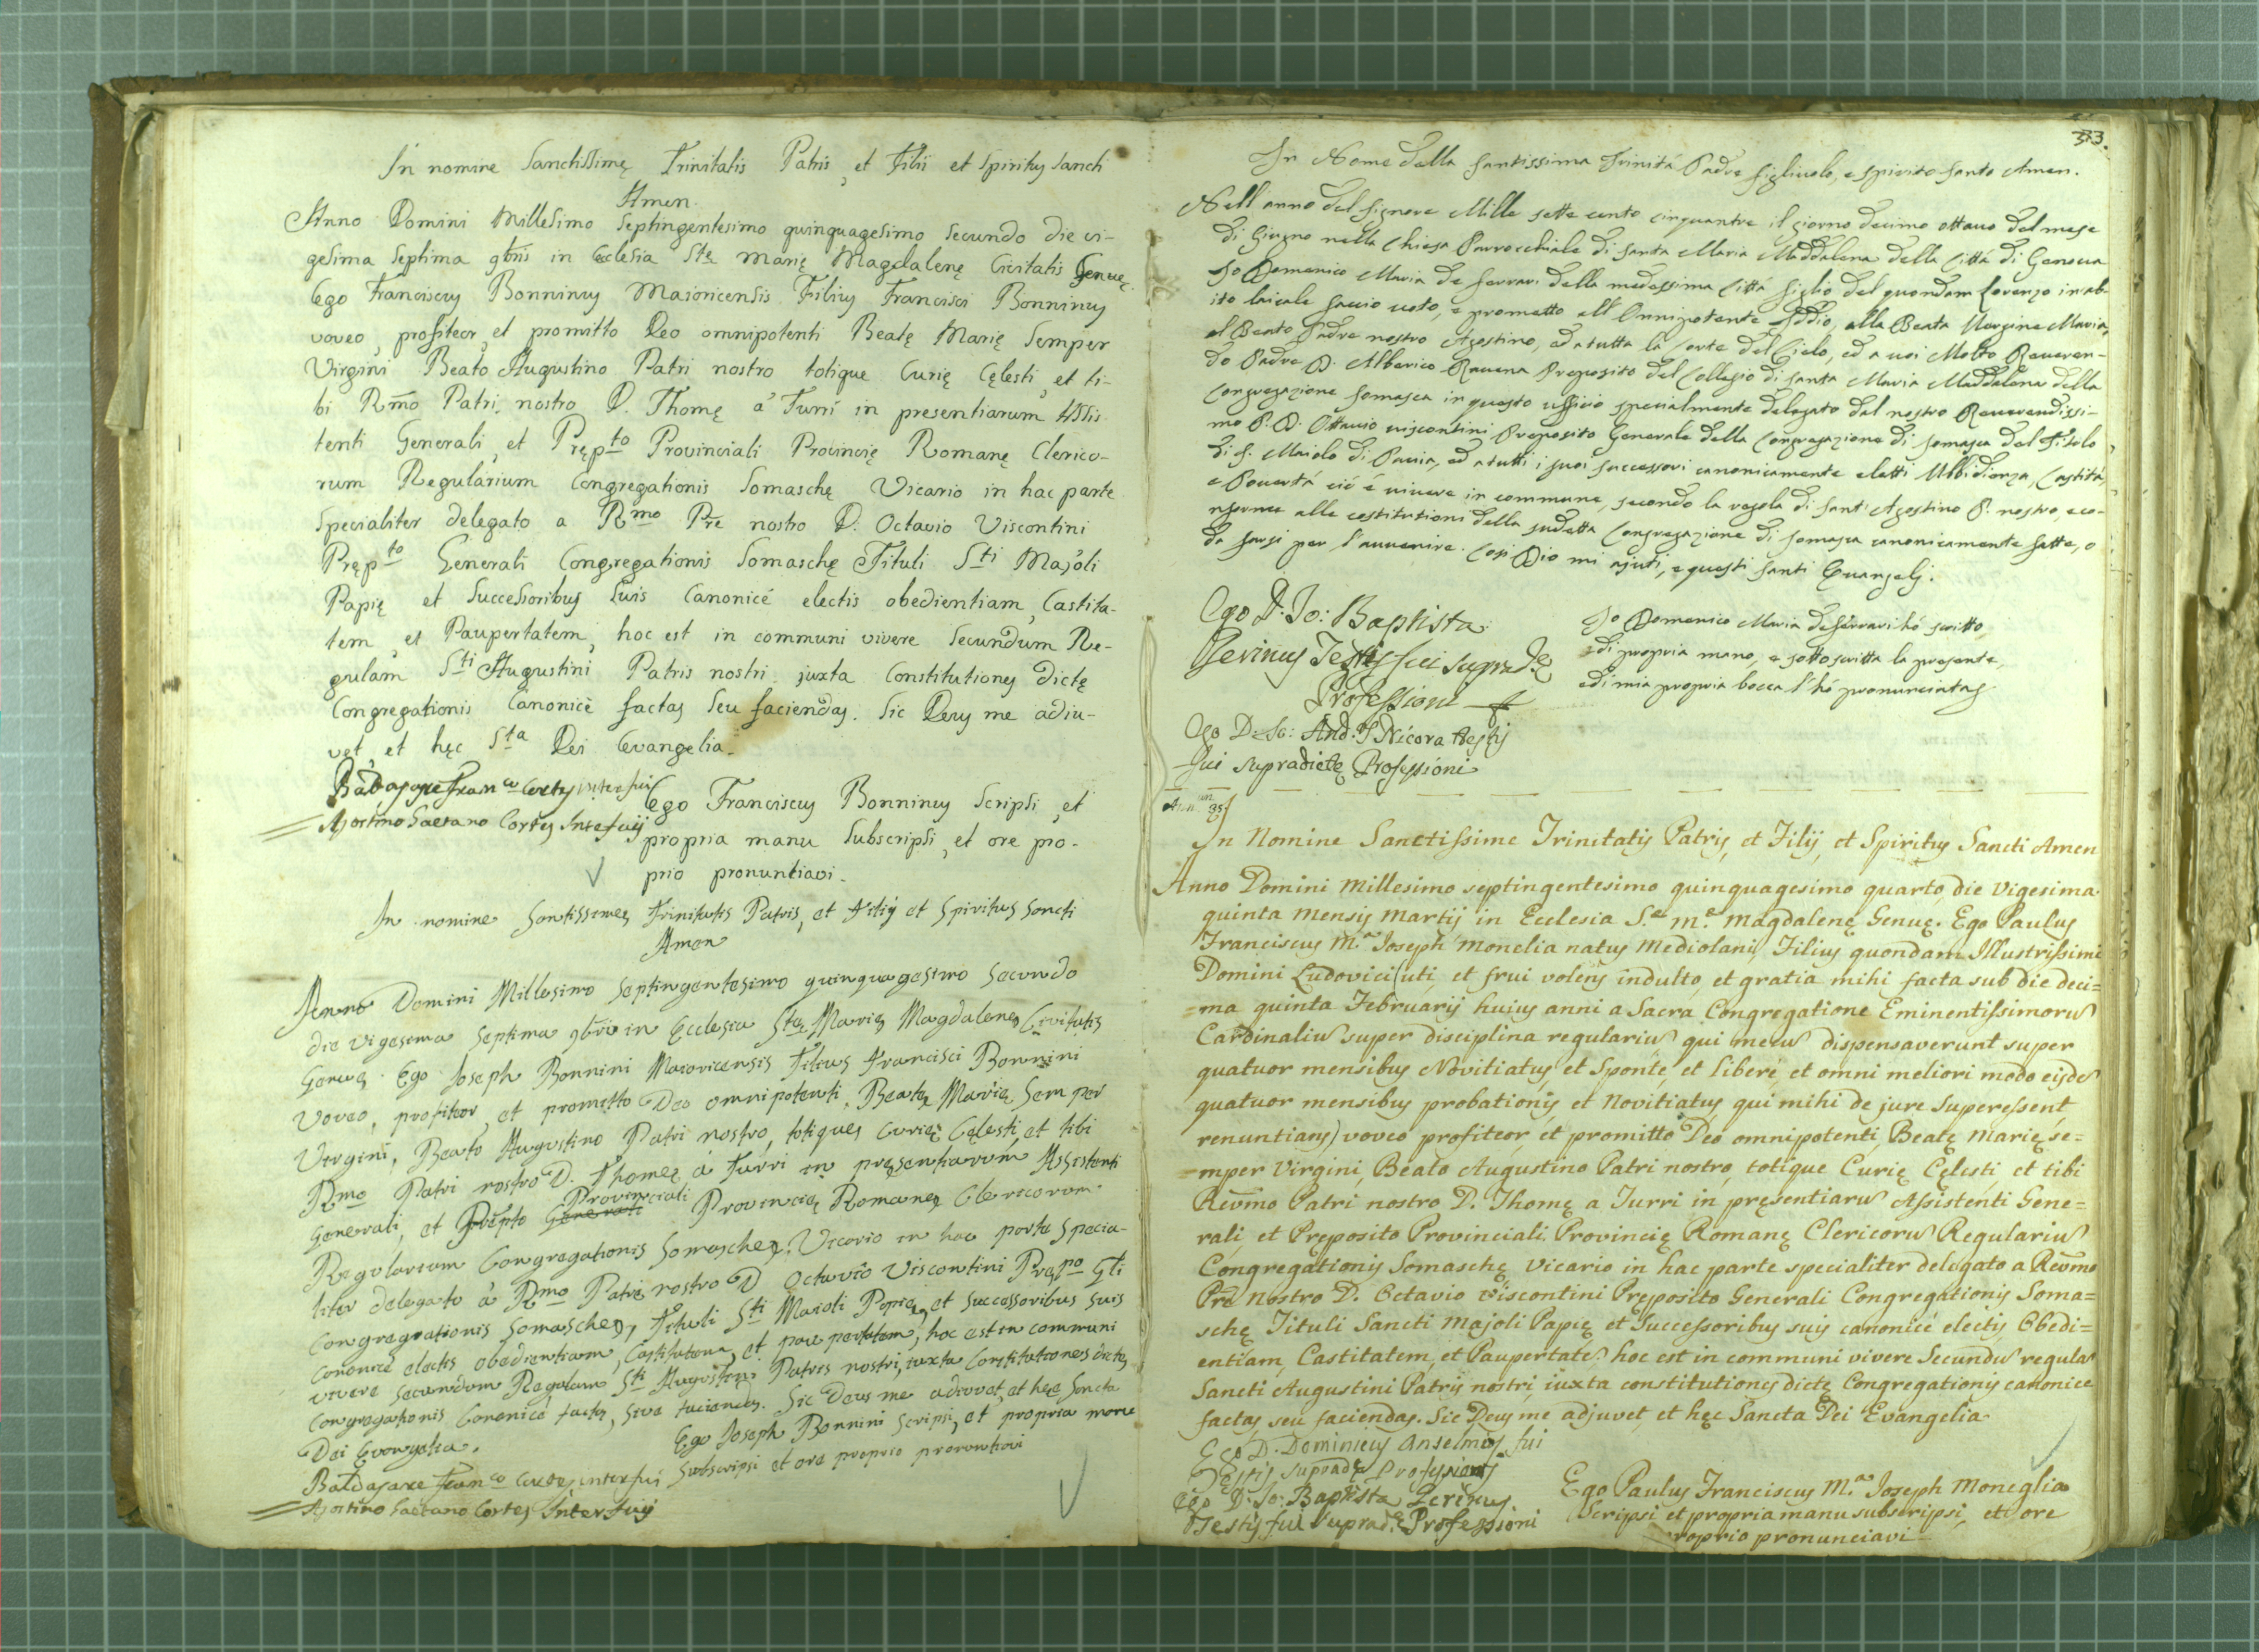 In nomine Sanctissimę Trinitatis Patris, et Filii et Spiritus Sancti
Amen.
Anno Domini Millesimo Septingentesimo quinquagesimo secundo die vi-
gesima septima 9bris in Ecclesia Stę Marię Magdalenę Civitatis Genuę
Ego Franciscus Bonninus Maioricensis Filius Francisci Bonninus
voveo, profiteor, et promitto Deo omnipotenti Beatę Marię Semper
Virgini Beato Augustino Patri nostro totique Curię Cęlesti, et ti-
bi Rmo Patri nostro D. Thomę á Turri in presentiarum Assis-
tenti Generali, et Prępto Provinciali Provincię Romanę Clerico-
rum Regularium Congregationis Somaschę Vicario in hac parte
Specialiter delegato a Rmo Pre nostro D: Octavio Viscontini
Prępto Generali Congregationis Somaschę Tituli Sti Majoli
Papię et Successoribus Suis Canonicé electis obedientiam, Castita-
tem, et Paupertatem, hoc est in communi vivere Secundum Re-
gulam Sti Augustini Patris nostri juxta Constitutiones dictę
Congregationis Canonicè factas seu faciendas. Sic Deus me adiu-
vet, et hęc Sta Dei Evangelia.
Baldasare Franco Cortes interfui
Agostino Gaetano Cortes Interfuij
Ego Franciscus Bonninus Scripsi, et
propria manu Subscripsi, et ore pro-
prio pronuntiavi.
In nomine Santissimę Trinitatis Patris, et Filij et Spiritus Sancti
Amen
Anno Domini Millesimo Septingentesimo quinquagesimo Secundo
die vigesema septima 9bris in Ecclesia Stę Marię Magdalenę Civitatis
Genuę. Ego Joseph Bonnini Maioricensis Filius Francisci Bonnini
Voveo, profiteor, et promitto Deo omnipotenti, Beatę Marię Semper
Virgini, Beato Augustino Patri nostro, totiquę Curię Cęlesti, et tibi
Rmo Patri nostro D. Thomę á Turri in pręsentiarum Assistenti
Generali, et Prępto Generali Provinciali Provincię Romanę Clericorum
Regularium Congregationis Somaschę, Vicario in hac parte Specia-
liter delegato á Rmo Patre nostro D. Octavio Viscontini Prępo Gli
Congregationis Somaschę, Tituli Sti Maioli Papię, et Successoribus Suis
Canonicè electis obedientiam, Castitatem, et paupertatem, hoc est in communi
vivere Secundum Regulam Sti Augustini Patris nostri, iuxta Constitutiones dictę
Congregationis Canonicé factas, sive faciendas. Sic Deus me adiuvet, et hęc Sancta
Dei Evangelia.
Ego Joseph Bonnini Scripsi, et propria manu
Subscripsi et ore proprio pronuntiavi
Baldasare Franco Cortes interfui
Agostino Gaetano Cortes Interfuij
313.
In Nome della Santissima Trinitá Padre Figliuolo, e Spirito Santo Amen.
Nell'anno del Signore Mille sette cento cinquantre il giorno decimo ottavo del mese
di Giugno nella Chiesa Parrocchiale di Santa Maria Maddalena della Cittá di Genova
Io Domenico Maria de Ferrari della medessima Cittá figlio del quondam Lorenzo in ab-
ito laicale faccio voto, e prometto all'Onnipotente Iddio, alla Beata Vergine Maria,
al Beato Padre nostro Agostino, ed a tutta la Corte del Cielo, ed a voi Molto Reveren-
do Padre D. Alberico Ravena Preposito del Collegio di Santa Maria Maddalena della
Congregazione Somasca in questo ufficio specialmente delegato dal nostro Reverendissi-
mo P. D. Ottavio Viscontini Preposito Generale della Congregazione di Somasca del Titolo
di S. Maiolo di Pavia, ed a tutti i suoi successori canonicamente eletti Ubbidienza, Castitá,
e Povertá ció é vivere in commune, secondo la regola di Sant'Agostino P. nostro, e co-
nforme alle costitutioni della sudetta Congregazione di Somasca canonicamente fatte, o
da farsi per l'avvenire. Cosi Dio mi ajuti, e questi Santi Evangelj.
Ego D. Io: Baptista
Perinus Testis fui supradę
Professioni
Ego D. Io: And. Nicora testis
fui supradictę Professioni
Io Domenico Maria de Ferrari hó scritto,
e di propria mano, e sottoscritta la presente,
e di mia propria bocca l'hó pronunciata
In Nomine Sanctissime Trinitatis Patris, et Filij, et Spiritus Sancti Amen
Anno Domini Millesimo septingentesimo quinquagesimo quarto, die vigesima
quinta mensis Martij in Ecclesia S.ę M.ę Magdalenę Genuę. Ego Paulus
Franciscus M.a Joseph Monelia natus Mediolani, Filius quondam Illustrissimi
Domini Ludovici (uti, et frui volens indulto, et gratia mihi facta sub die deci=
=ma quinta Februarij huius anni a Sacra Congregatione Eminentissimoru
Cardinaliu super disciplina regulariu qui mecu dispensaverunt super
quatuor mensibus Novitiatus, et Sponte, et liberé, et omni meliori modo eisde
quatuor mensibus probationis, et Novitiatus, qui mihi de jure Superessent,
renuntians) voveo profiteor, et promitto Deo omnipotenti, Beatę Marię se=
=mper Virgini, Beato Augustino Patri nostro, totique Curię Cęlesti, et tibi
Revmo Patri nostro D. Thomę a Turri in pręsentiaru Assistenti Gene=
rali, et Pręposito Provinciali Provincię Romanę Clericoru Regulariu
Congregationis Somaschę Vicario in hac parte specialiter delegato a Revmo
Pre Nostro D. Octavio Viscontini Pręposito Generali Congregationis Soma=
schę Tituli Sancti Majoli Papię et Successoribus suis canonicé electis Obedi=
entiam, Castitatem, et Paupertate, hoc est in communi vivere Secundu regula
Sancti Augustini Patris nostri iuxta constitutiones dictę Congregationis canonice
factas seu faciendas. Sic Deus me adjuvet, et hęc Sancta Dei Evangelia
Ego D. Dominicus Anselmus fui
Testis supradę Professionis
Ego D. Io: Baptista Perinus
Testis fui supradę Professioni
Ego Paulus Franciscus M.a Joseph Moneglia
Scripsi et propria manu subscripsi, et ore
proprio pronunciavi